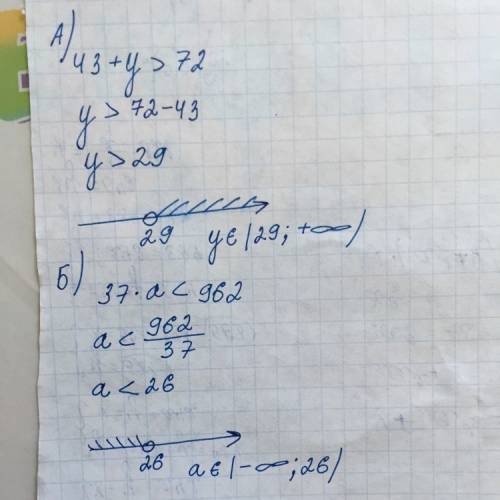 А)
43 + y > 72
y > 72 - 43
y > 29
29 y ∈ (29; +∞)
Б)
37 · a < 962
a < 962/37
a < 26
26 a ∈ (-∞; 26)